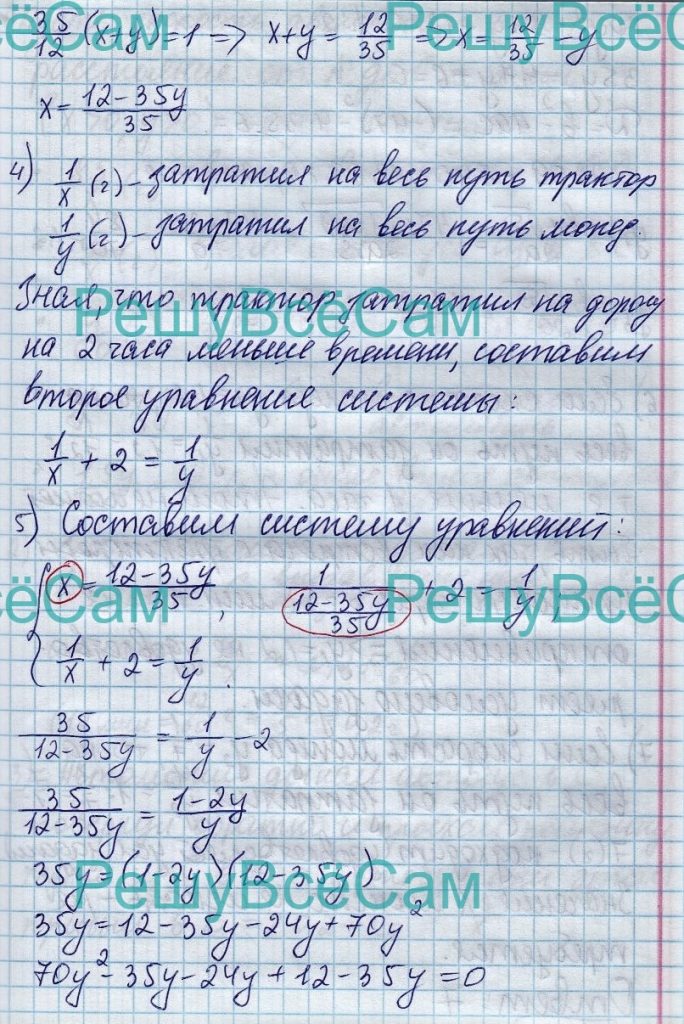 35/12 (x+y)=1 => x+y = 12/35 => x = 12/35 - y
x = (12-35y)/35
4) 1/x (г) - затратил на весь путь трактор
1/y (г) - затратил на весь путь мопед.
Зная, что трактор затратил на дорогу
на 2 часа меньше времени, составим
второе уравнение системы:
1/x + 2 = 1/y
5) Составим систему уравнений:
{ x = (12-35y)/35 , 1/((12-35y)/35) + 2 = 1/y ,
1/x + 2 = 1/y .
35/(12-35y) = 1/y - 2
35/(12-35y) = (1-2y)/y
35y = (1-2y)(12-35y)
35y = 12 - 35y - 24y + 70y²
70y² - 35y - 24y + 12 - 35y = 0
РешуВсёСам